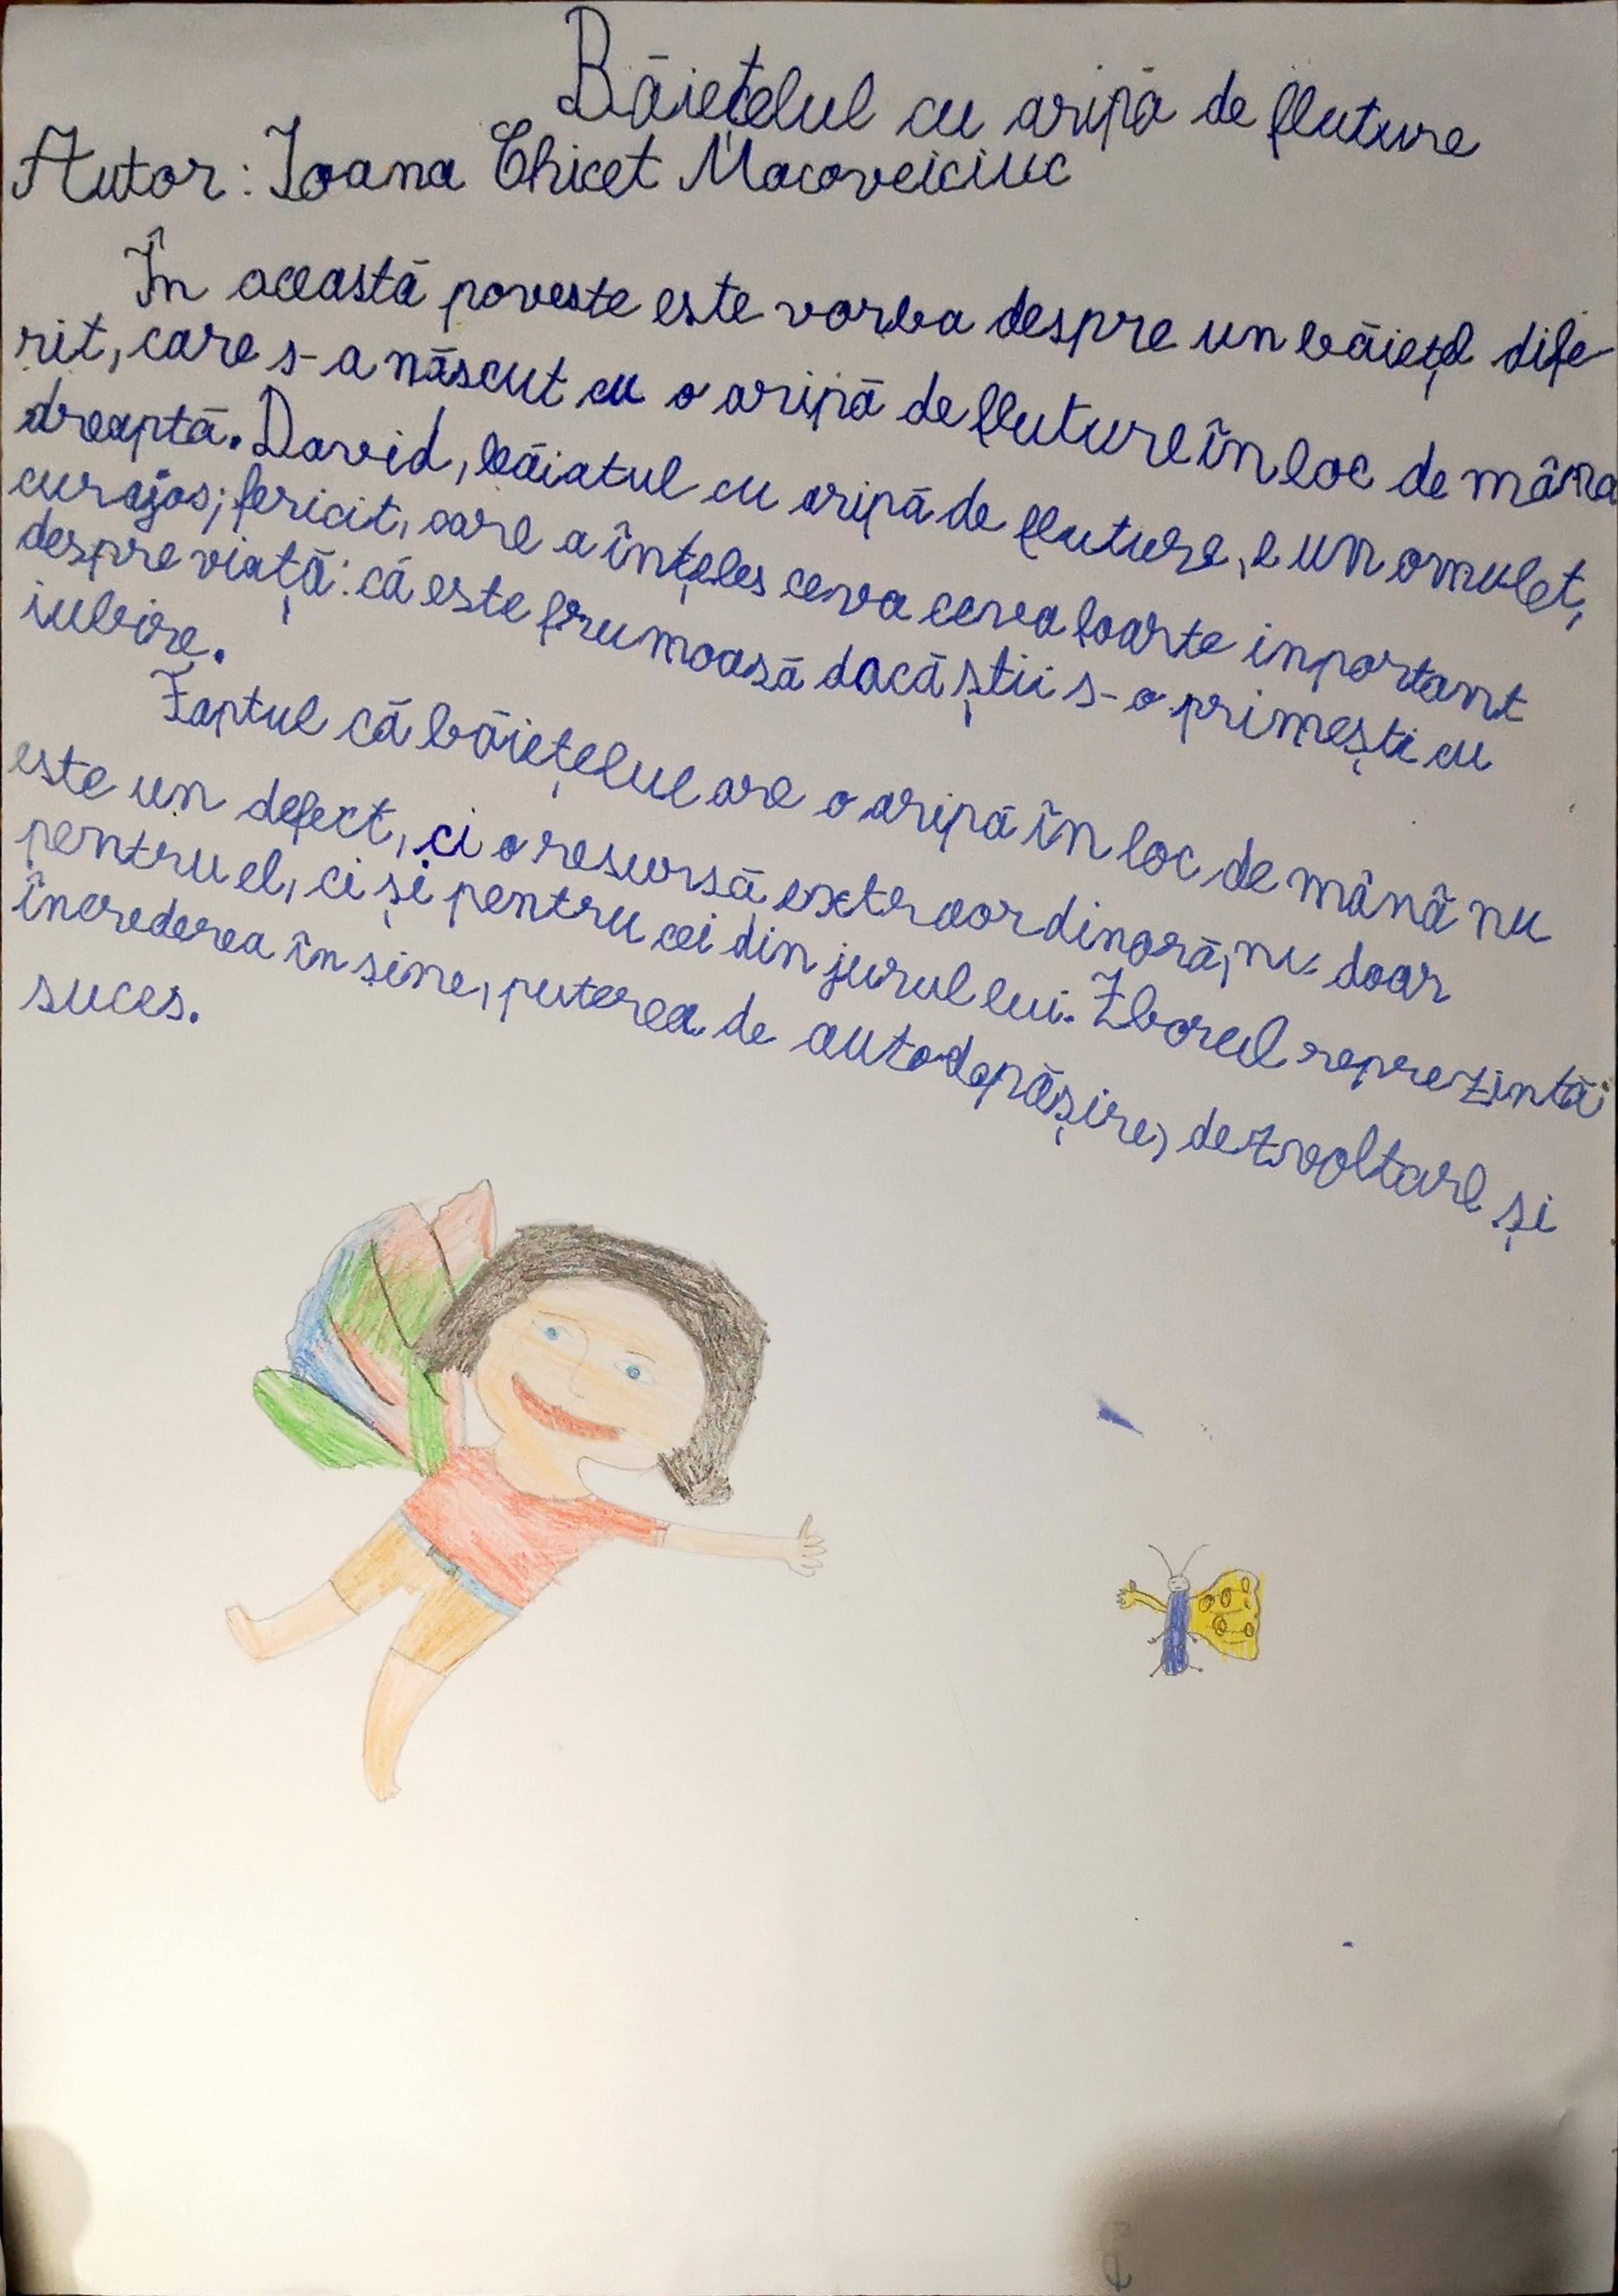 Băiețelul cu aripă de fluture
Autor: Ioana Chicet Macoveiciuc
În această poveste este vorba despre un băiețel dife
rit, care s-a născut cu o aripă de fluture în loc de mâna
dreaptă. David, băiatul cu aripă de fluture, e un omuleț,
curajos, fericit, care a înțeles ceva ceva foarte inportant
despre viață: că este frumoasă dacă știi s-o primești cu
iubire.
Faptul că băiețelul are o aripă în loc de mână nu
este un defect, ci o resursă extraordinară, nu doar
pentru el, ci și pentru cei din jurul lui. Zborul reprezintă
încrederea în sine, puterea de autodepășire, dezvoltare și
suces.